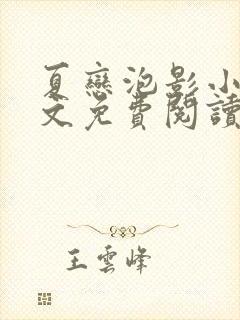 夏戀泡影小
文免費閱讀
王雲峰